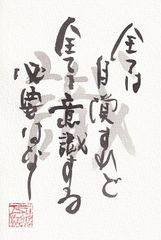 全ては
すれど
全てを意識する
必要はなし